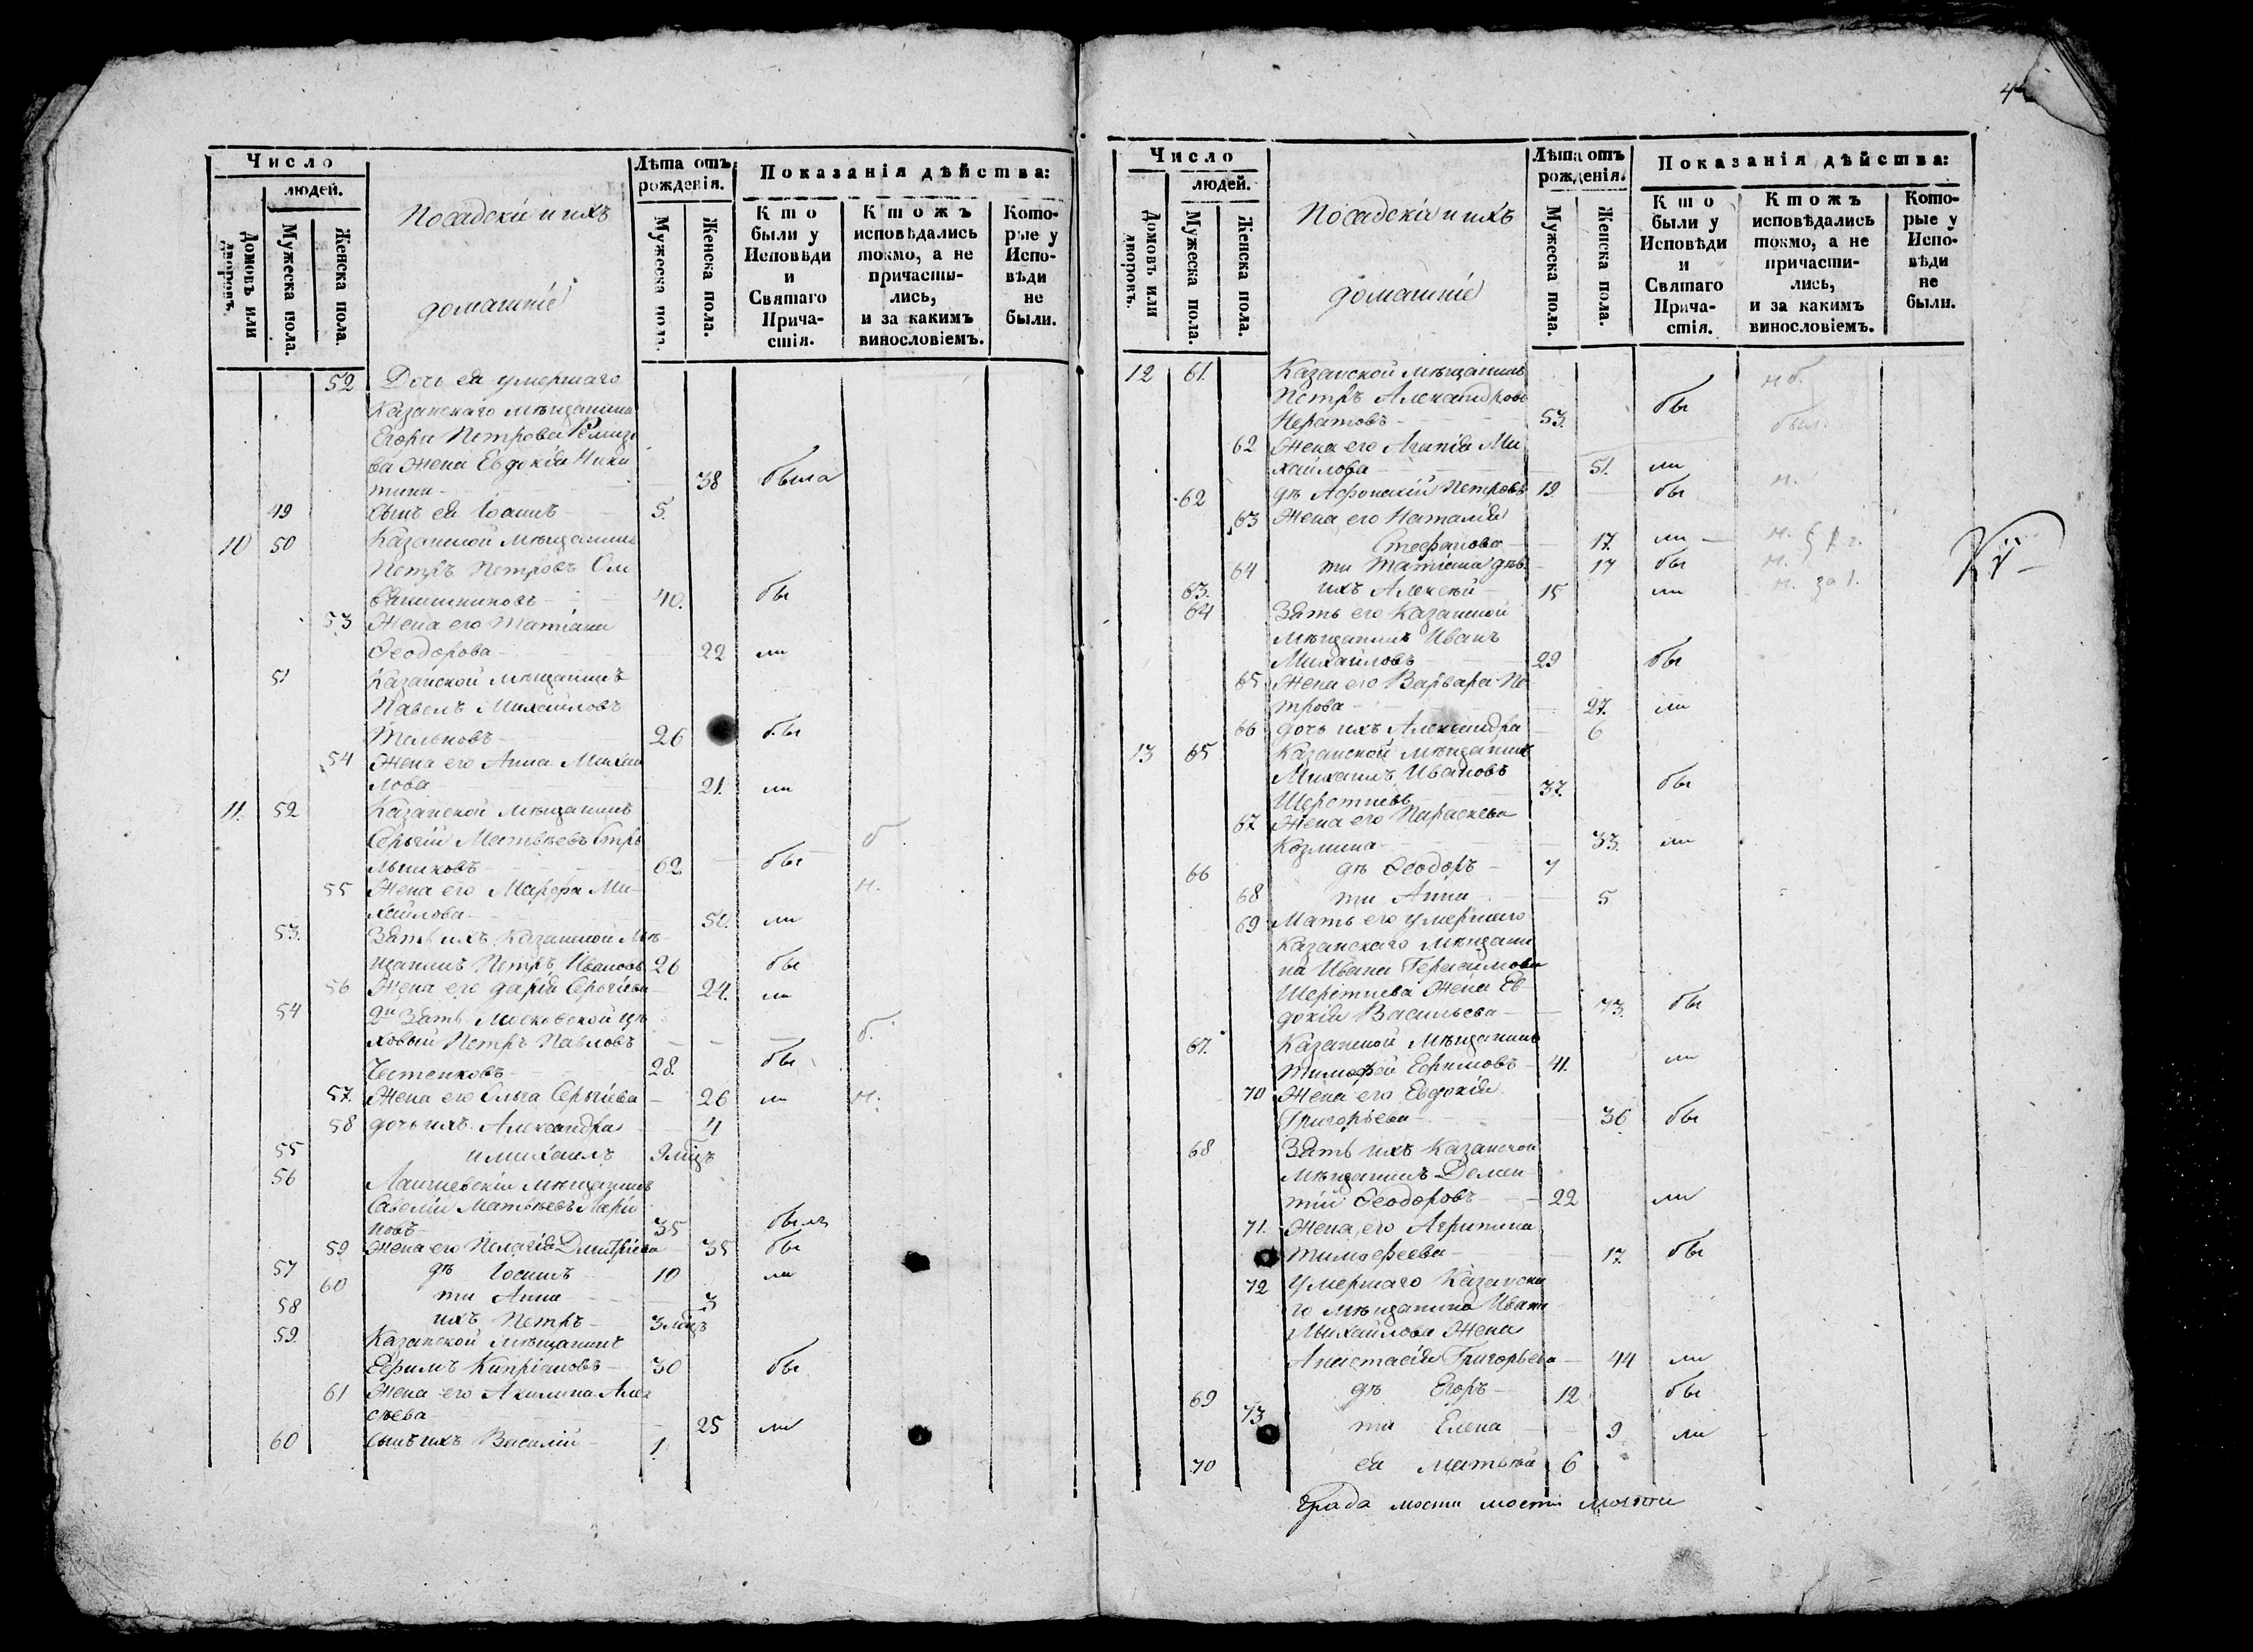 Число
людей.
Домовъ или дворовъ.
Мужеска пола.
Женска пола.
Посадскіи и ихъ
домашніе
Лѣта отъ рожденія.
Мужеска пола.
Женска пола.
Показанія дѣйства:
Кто были у Исповѣди и Святаго Причастія.
Ктожъ исповѣдались токмо, а не причастились, и за какимъ винословіемъ.
Которые у Исповѣди не были.
52 Дочь ея умершаго
Казанскаго мѣщанина
Егора Петрова
ва жена Евдокія Ники
тина 38 была
49 Сынъ ея Іоаннъ 5.
10 50 Казанской мѣщанинъ
Петръ Петровъ
40. бы
53 Жена его Татіана
Ѳеодорова 22 ли
51 Казанской мѣщанинъ
Павелъ Михайловъ
Тельновъ 26 бы
54 Жена его Анна Михай
лова 21. ли
11. 52 Казанской мѣщанинъ
Сергій Матвѣевъ Стрѣ б
льниковъ 62 бы
55 Жена его Марфа Ми- н.
хайлова 50. ли
53. Зять ихъ Казанской мѣ-
щанинъ Петръ Ивановъ 26 бы
56 Жена его Дарія Сергіева 24. ли
54 2й Зять Московской цѣ
ховый Петръ Павловъ б.
28. бы
57. Жена его Ольга Сергіева 26 ли н.
58 дочь ихъ Александра 4
55 и михаилъ 9 мцъ
56 Лаишевскій мѣщанинъ
Савелій Матвѣевъ Лари
новъ 35 былъ
59 Жена его Пелагія Дмитріева 35 бы
57 дѣ Іосифъ 10 ли
60 ти Анна 3
58 ихъ Петръ 3 мцъ
59. Казанской мѣщанинъ
Ефимъ Кипріановъ 30 бы
61 Жена его Акилина Алек
сѣева 25 ли
60 сынъ ихъ Василій 1.
4
Число
людей.
Домовъ или дворовъ.
Мужеска пола.
Женска пола.
Посадскіи и ихъ
домашніе
Лѣта отъ рожденія.
Мужеска пола.
Женска пола.
Показанія дѣйства:
Кто были у Исповѣди и Святаго Причастія.
Ктожъ исповѣдались токмо, а не причастились, и за какимъ винословіемъ.
Которые у Исповѣди не были.
12 61. Казанской мѣщанинъ н б.
Петръ Александровъ
Нератовъ 53. бы был.
62 Жена его Агапія Ми
хайлова 51. ли
62 дѣ Афонасій Петровъ 19. бы н.
63 Жена его Наталія
Стефанова 17. ли н.
64 ти Татіана дѣв. 17 бы н.
63. ихъ Алексѣй 15 ли н. за 1.
64 Зять его Казанской
мѣщанинъ Иванъ
Михайловъ 29 бы
65 Жена его Варвара Пе
трова 27. ли
66 дочь ихъ Александра 6
13 65 Казанской мѣщанинъ
Михаилъ Ивановъ
Шереметьевъ 37. бы
67 Жена его Параскева
Козмина 33. ли
66 дѣ Ѳеодоръ 7
68 ти Анна 5
69 Мать его умершаго
Казанскаго мѣщани
на Ивана Герасимова
жена Ев
докія Васильева 73. бы
67. Казанской мѣщанинъ
Тимофей Ефимовъ 41. ли
70 Жена его Евдокія
Григорьева 36 бы
68 Зять ихъ Казанской
мѣщанинъ Демен
тій Ѳеодоровъ 22 ли
71. Жена его Агрипина
Тимофеева 17. бы
72 Умершаго Казанска
го мѣщанина Ивана
Михайлова Жена
Анастасія Григорьева 44 ли
69 дѣ Егоръ 12 бы
73 ти Елена 9 ли
70 ея Матвѣй 6